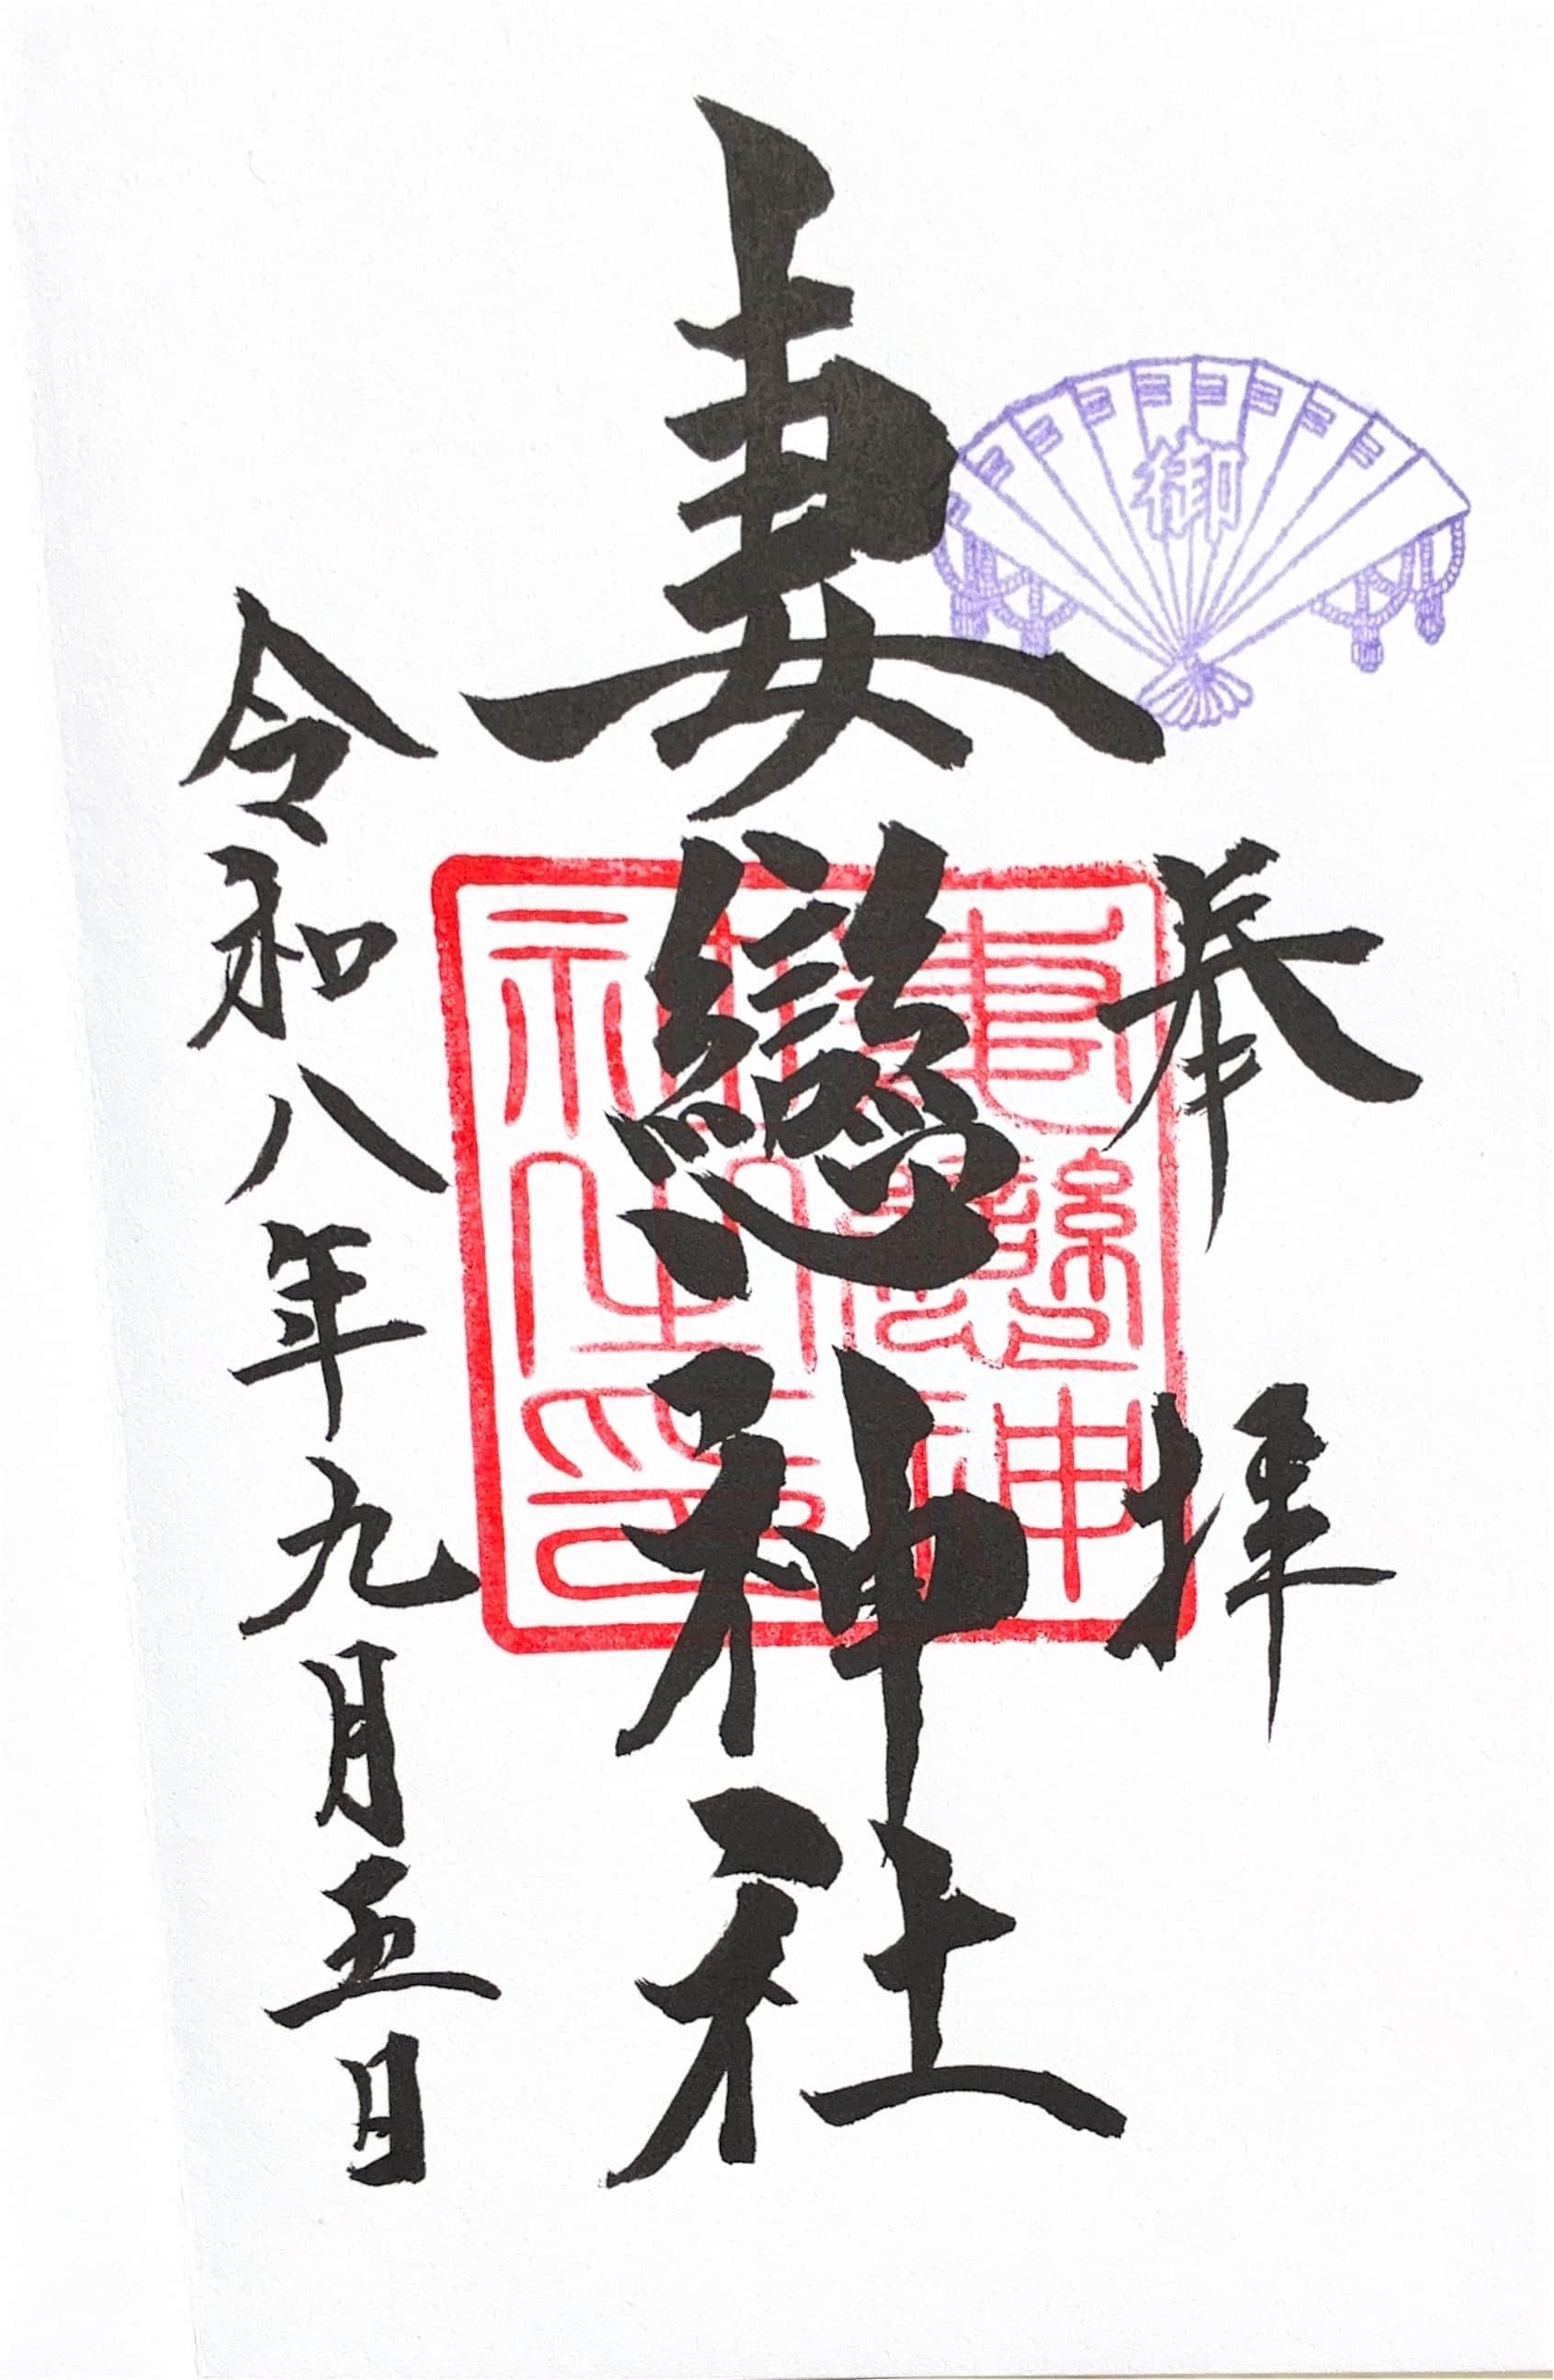 奉拝
御
妻戀神社
妻戀神社之印
令和八年九月五日